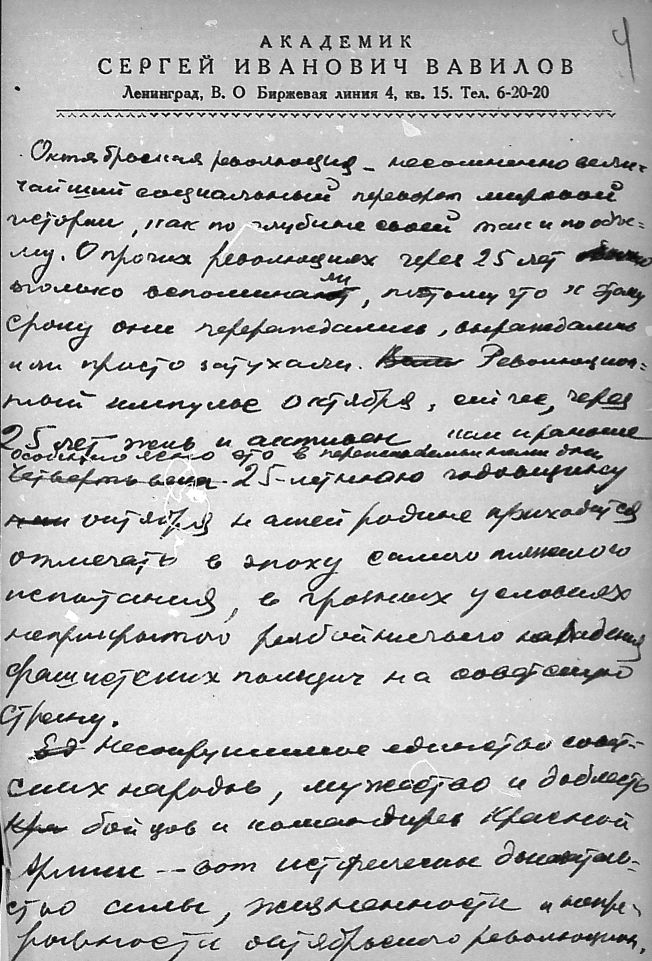 4
АКАДЕМИК
СЕРГЕЙ ИВАНОВИЧ ВАВИЛОВ
Ленинград, В. О Биржевая линия 4, кв. 15. Тел. 6-20-20
Октябрьская революция – несомненно вели-
чайший социальный переворот мировой
истории, как по глубине своей так и по объе-
му. О прочих революциях через 25 лет
только вспоминали, потому что к этому
сроку они перерождались, вырождались
или просто затухали. Революцион-
ный импульс октября, сейчас, через
25 лет жив и активен как и раньше
особенно ясно это в переживаемые нами дни
Четверть века 25-летнюю годовщину
октября нашей родине приходится
отмечать в эпоху самого тяжелого
испытания, в грозных условиях
неприкрытого разбойничьего нападения
фашистских полчищ на советскую
страну.
Несокрушимое единство совет-
ских народов, мужество и доблесть
бойцов и командиров Красной
Армии – вот историческое доказатель-
ство силы, жизненности и непре-
рывности октябрьской революции.